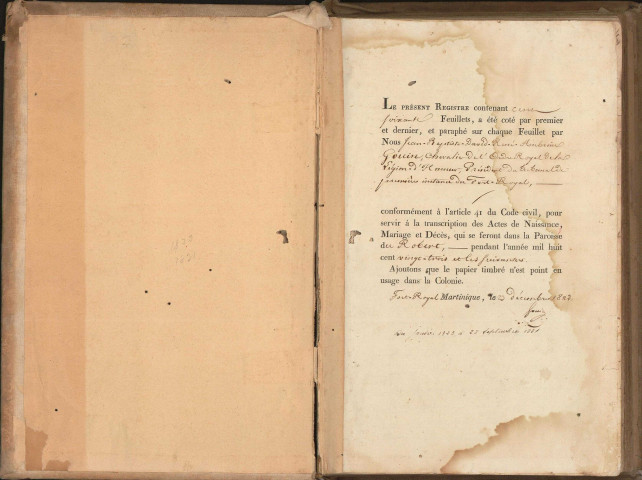 LE PRÉSENT REGISTRE contenant cent
soixante Feuillets, a été coté par premier
et dernier, et paraphé sur chaque Feuillet par
Nous Jean-Baptiste David
Chevalier de l'Ordre Royal de la
Légion d'Honneur, de
première instance du Fort-Royal,
conformément à l'article 41 du Code civil, pour
servir à la transcription des Actes de Naissance,
Mariage et Décès, qui se feront dans la Paroisse
du Robert, pendant l'année mil huit
cent vingt-trois et les suivantes.
Ajoutons que le papier timbré n'est point en
usage dans la Colonie.
Fort-Royal Martinique, décembre
22 Septembre